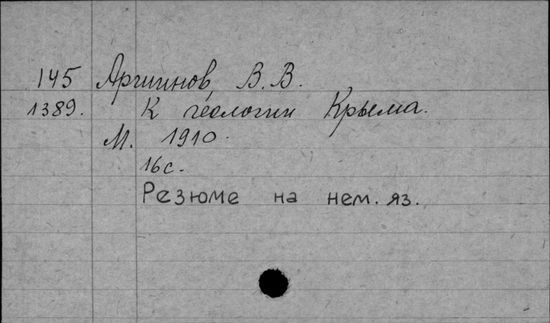 145 Аршинов, В. В.
1389. К геологии Крыма.
М. 1910.
16с.
Резюме на нем. яз.